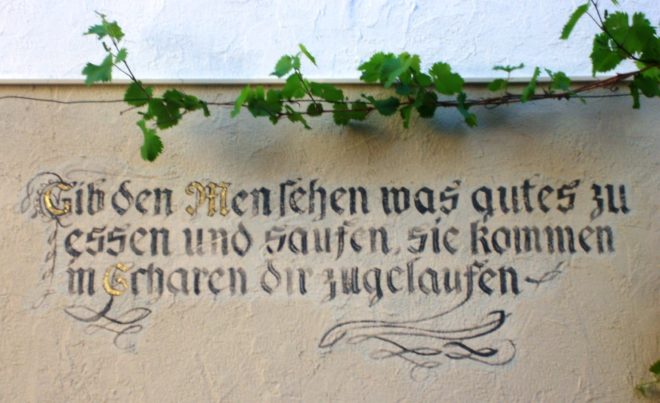 Gib den Menschen was gutes zu
essen und saufen, sie kommen
in Scharen dir zugelaufen